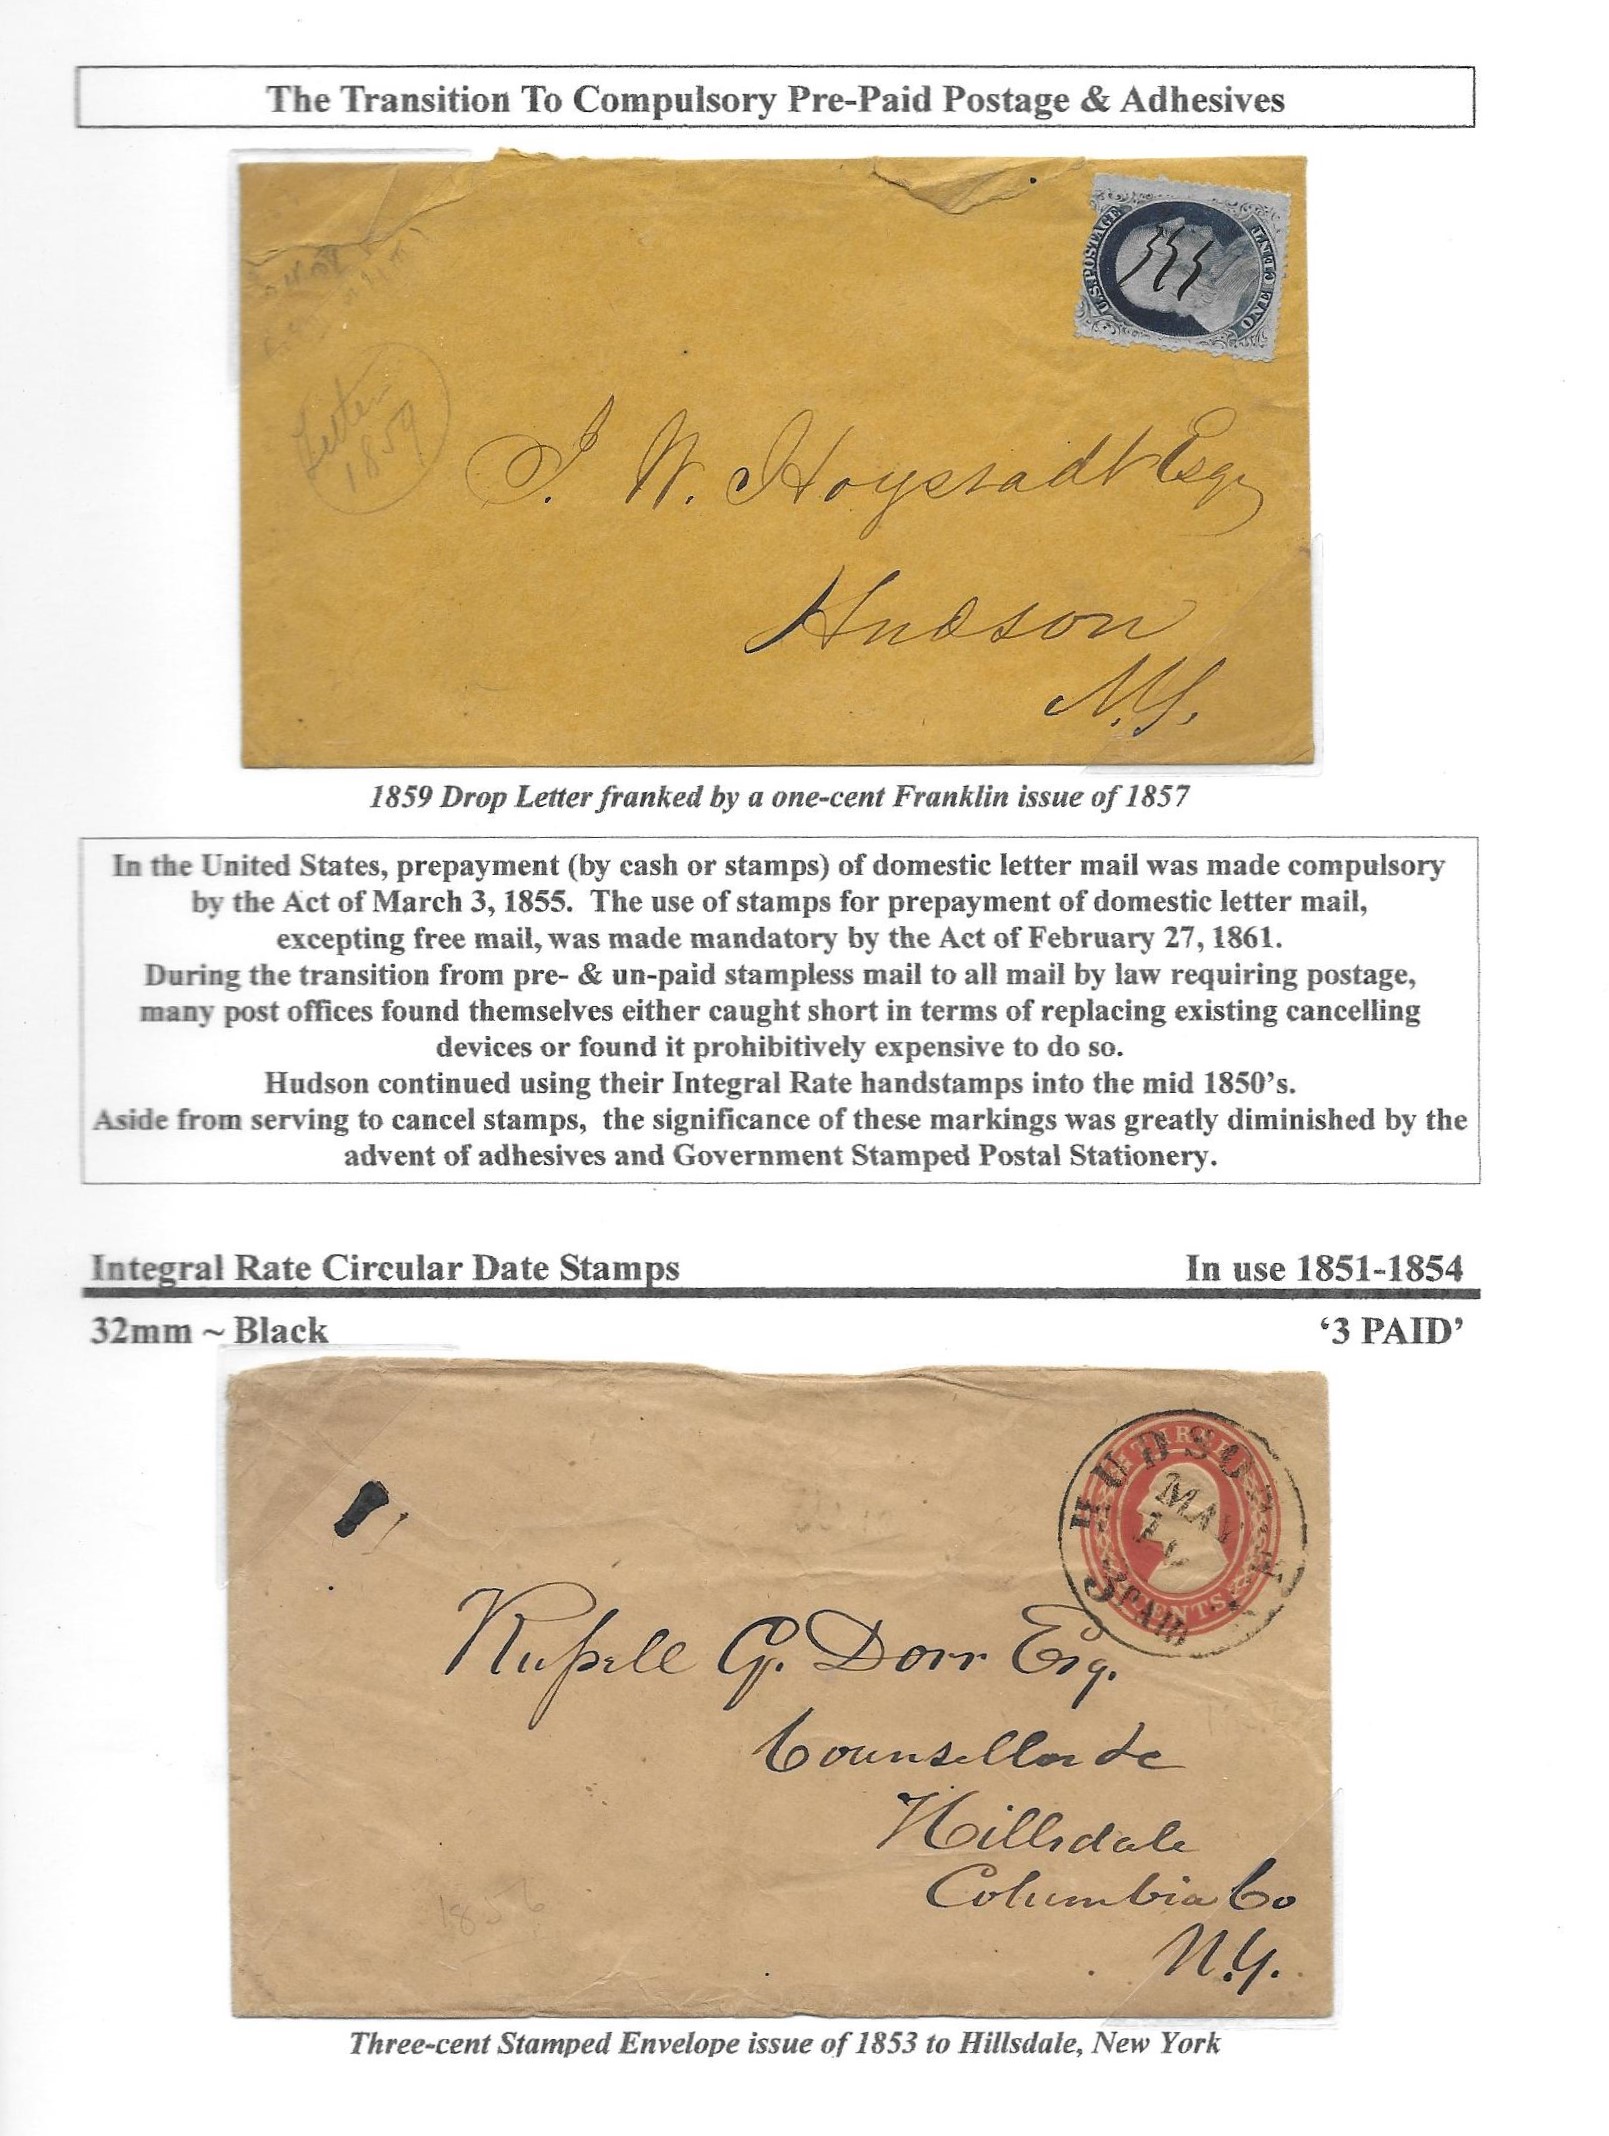 The Transition To Compulsory Pre-Paid Postage & Adhesives
U.S. POSTAGE
ONE CENT
Letter
1859
J. W. Hoysradt Esqr
Hudson
N.Y.
1859 Drop Letter franked by a one-cent Franklin issue of 1857
In the United States, prepayment (by cash or stamps) of domestic letter mail was made compulsory
by the Act of March 3, 1855. The use of stamps for prepayment of domestic letter mail,
excepting free mail, was made mandatory by the Act of February 27, 1861.
During the transition from pre- & un-paid stampless mail to all mail by law requiring postage,
many post offices found themselves either caught short in terms of replacing existing cancelling
devices or found it prohibitively expensive to do so.
Hudson continued using their Integral Rate handstamps into the mid 1850's.
Aside from serving to cancel stamps, the significance of these markings was greatly diminished by the
advent of adhesives and Government Stamped Postal Stationery.
Integral Rate Circular Date Stamps In use 1851-1854
32mm ~ Black '3 PAID'
THREE
HUDSO
MAY
3 PAID
CENTS
Russell G. Dorr Esq.
Counsellor &c
Hillsdale
Columbia Co
N.Y.
1856
Three-cent Stamped Envelope issue of 1853 to Hillsdale, New York